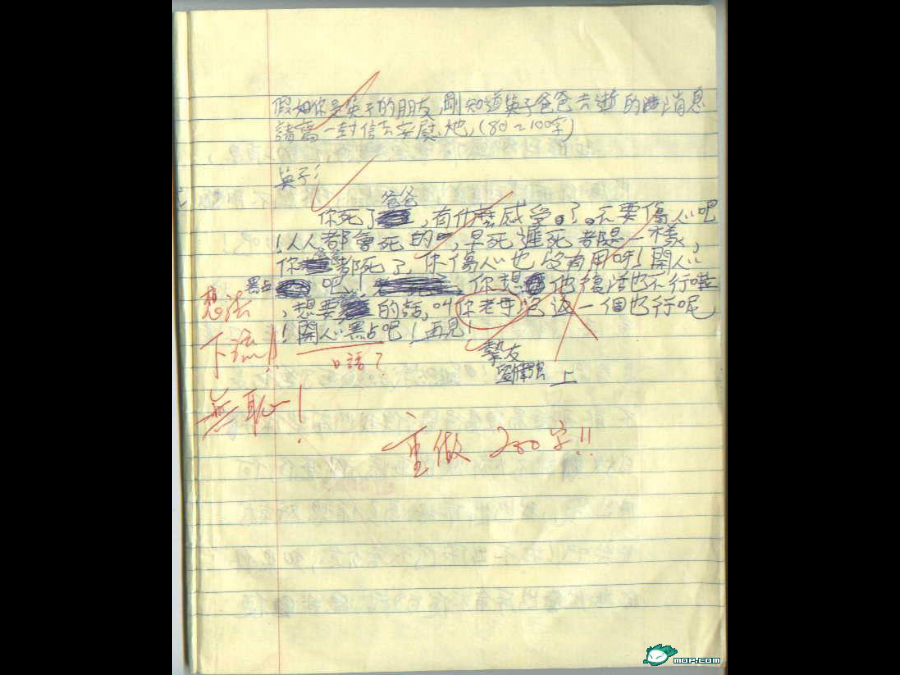 假如你是英子的朋友,剛知道英子爸爸去逝的消息
請寫一封信去安慰她,(80~100字)
英子:
爸爸
你死了,有什麼感受。了。不要傷心吧
!人人都會死的,早死遲死都是一樣,
你都死了,你傷心也沒有用呀!開心
點吧!你想他復活也不行啦
,想要的話,叫你老母
!開心點吧!再見!
摯友
上
想法
下流!!
無恥!
口語?
重做 200字!!
MOP.COM